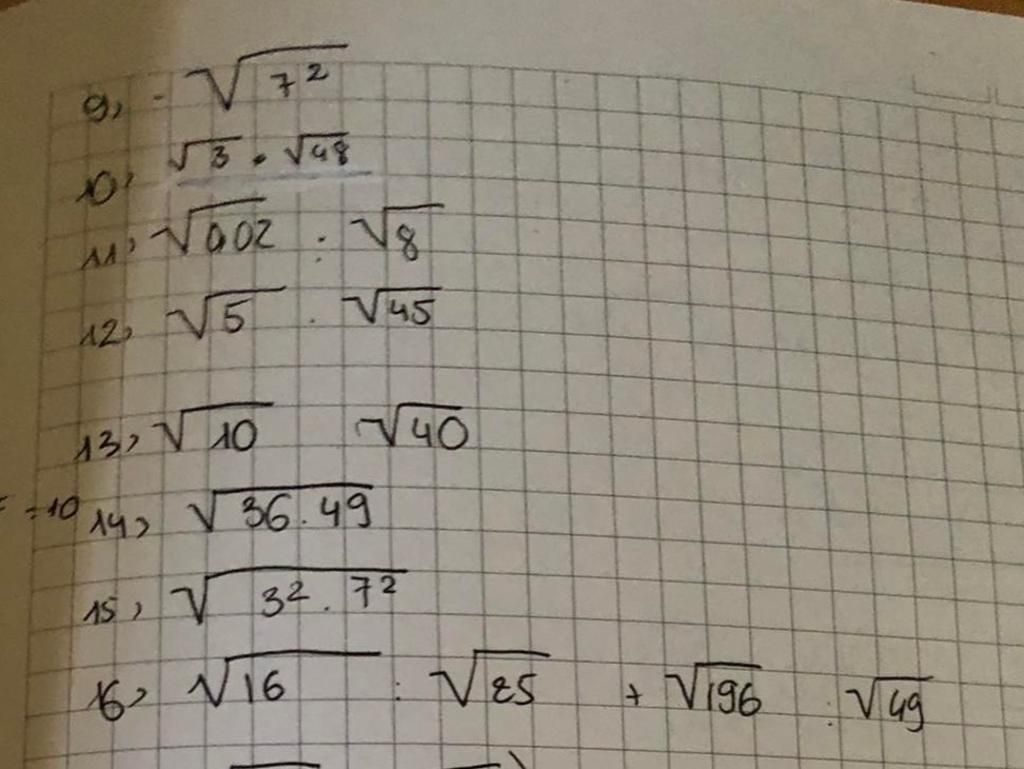 9, - √7²
10, √3 · √48
11, √0,02 : √8
12, √5 . √45
13, √10 √40
= -10 14, √36.49
15, √3² . 7²
16, √16 : √25 + √196 : √49